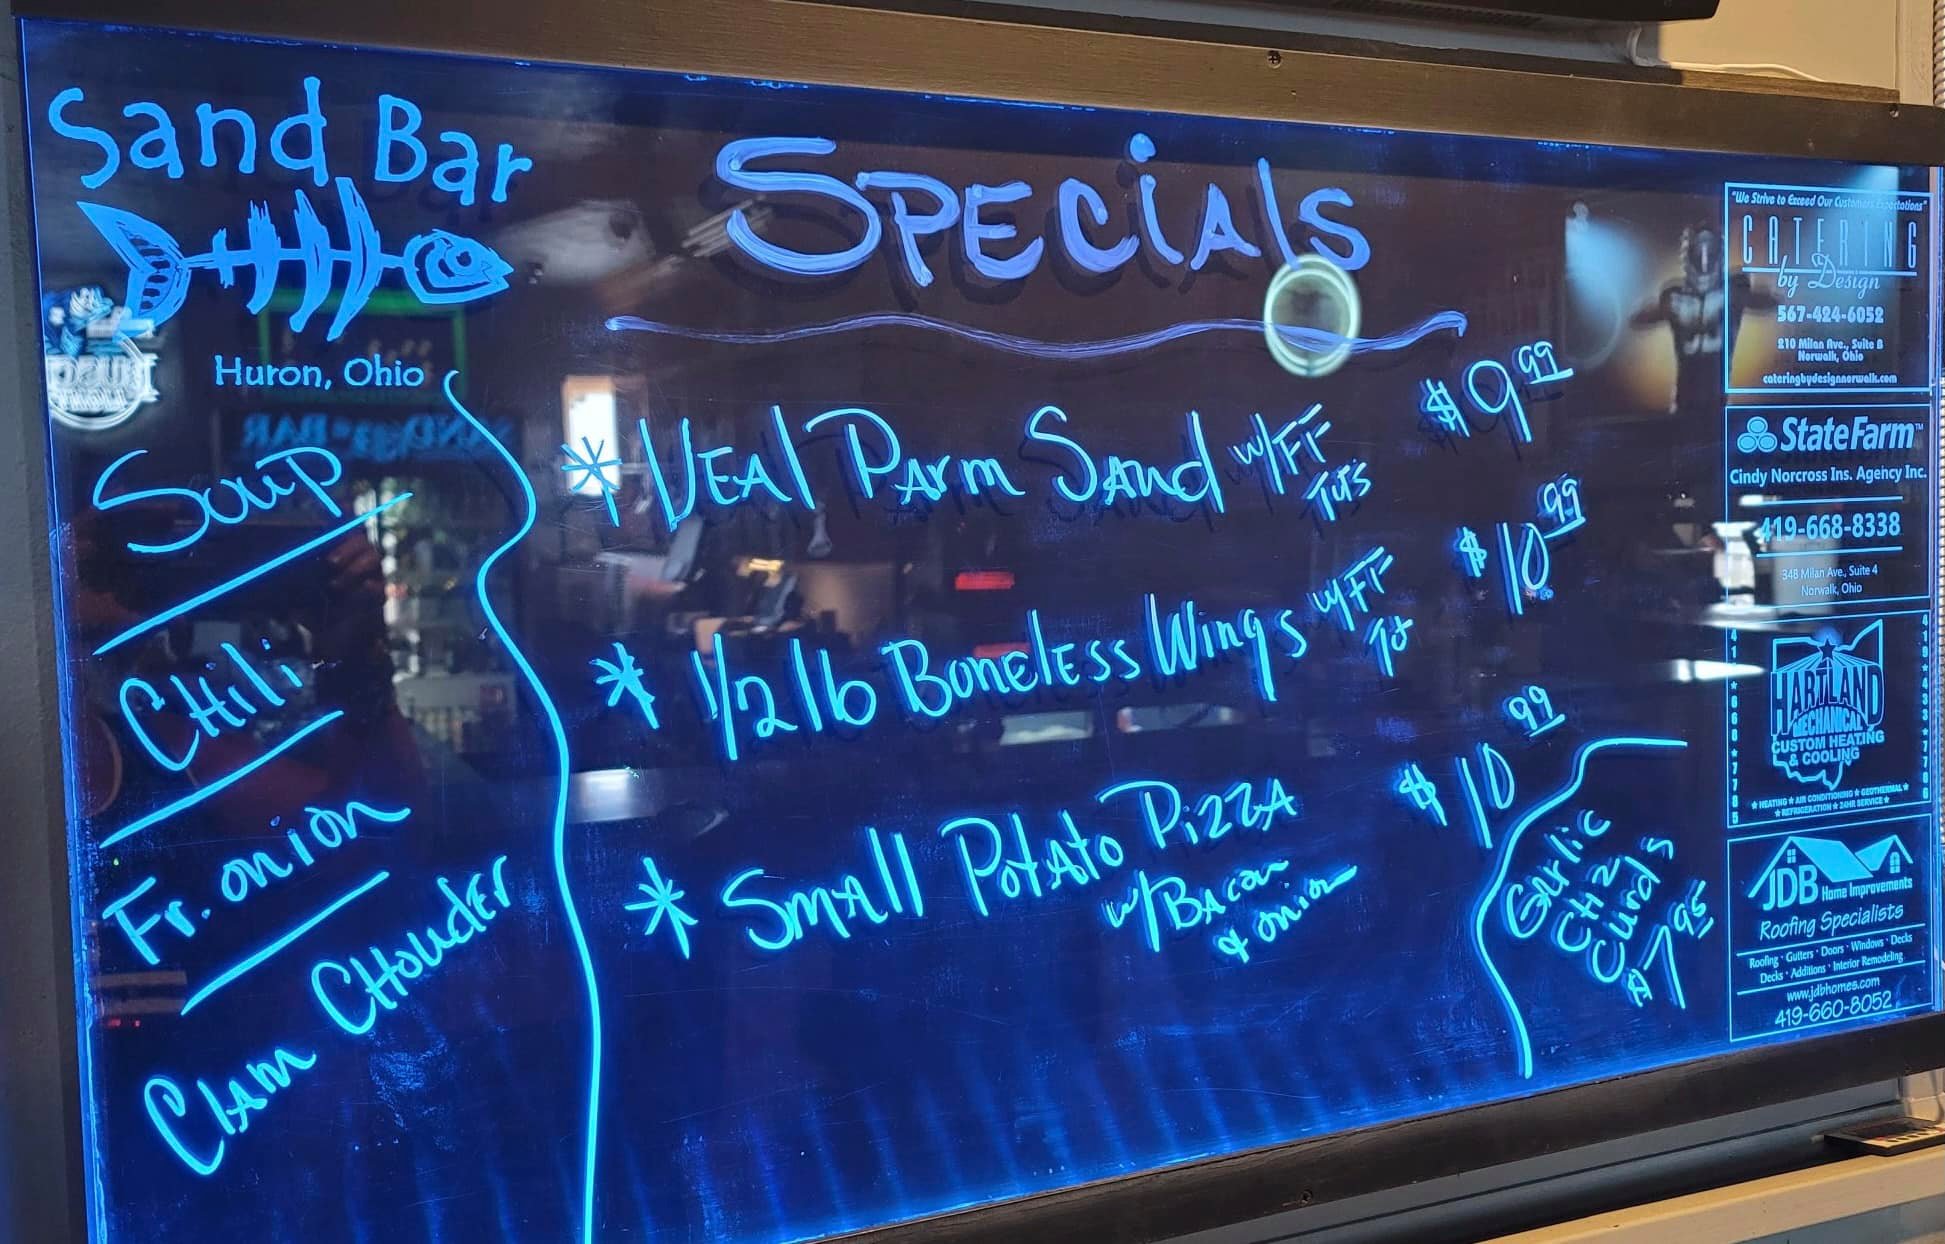 Sand Bar
Huron, Ohio
Soup
CHili
Fr. onion
Clam CHowder
SPECiAls
* VEAl PArm SAnd w/FF $9.99
Tots
* 1/2 lb BoneLESS Wings w/FF $10.99
Tot
* SmAll PotAto PizzA $10.99
w/BAcon
& onion
GArlic
CHz
Curds
$7.95
"We Strive to Exceed Our Customers Expectations"
CATERING
by Design
567-424-6052
210 Milan Ave., Suite B
Norwalk, Ohio
cateringbydesignnorwalk.com
StateFarm™
Cindy Norcross Ins. Agency Inc.
419-668-8338
348 Milan Ave., Suite 4
Norwalk, Ohio
HARTLAND
MECHANICAL
CUSTOM HEATING
& COOLING
★ HEATING ★ AIR CONDITIONING ★ GEOTHERMAL ★
★ REFRIGERATION ★ 24HR SERVICE ★
419★433★7706
JDB Home Improvements
Roofing Specialists
Roofing · Gutters · Doors · Windows · Decks
Decks · Additions · Interior Remodeling
www.jdbhomes.com
419-660-8052